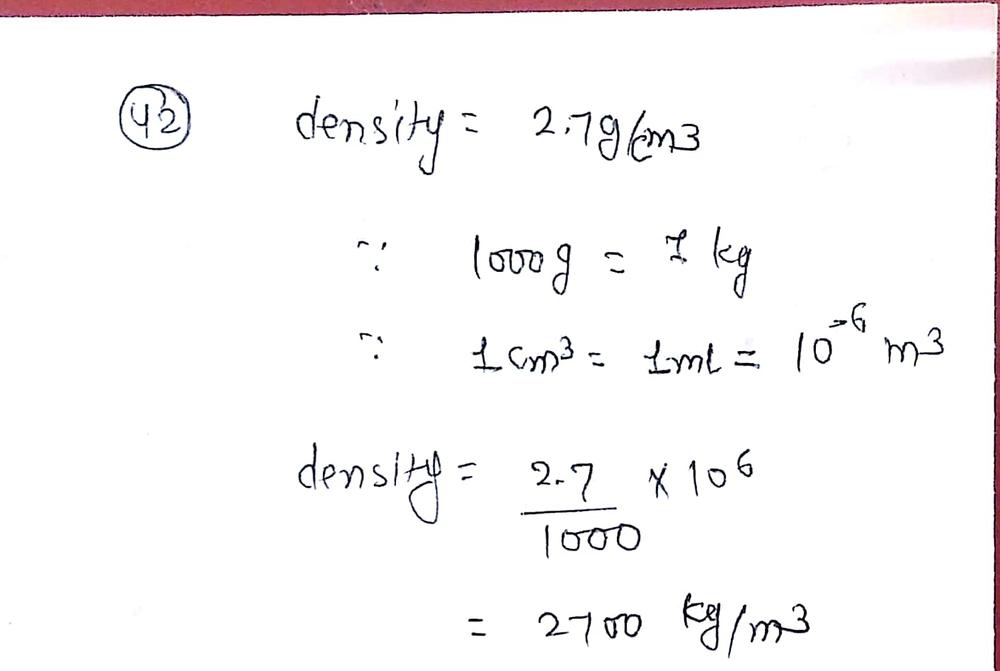 42 density = 2.7g/cm3
∵ 1000g = 1 kg
∵ 1 cm³ = 1ml = 10⁻⁶ m³
density = 2.7/1000 × 10⁶
= 2700 kg/m³